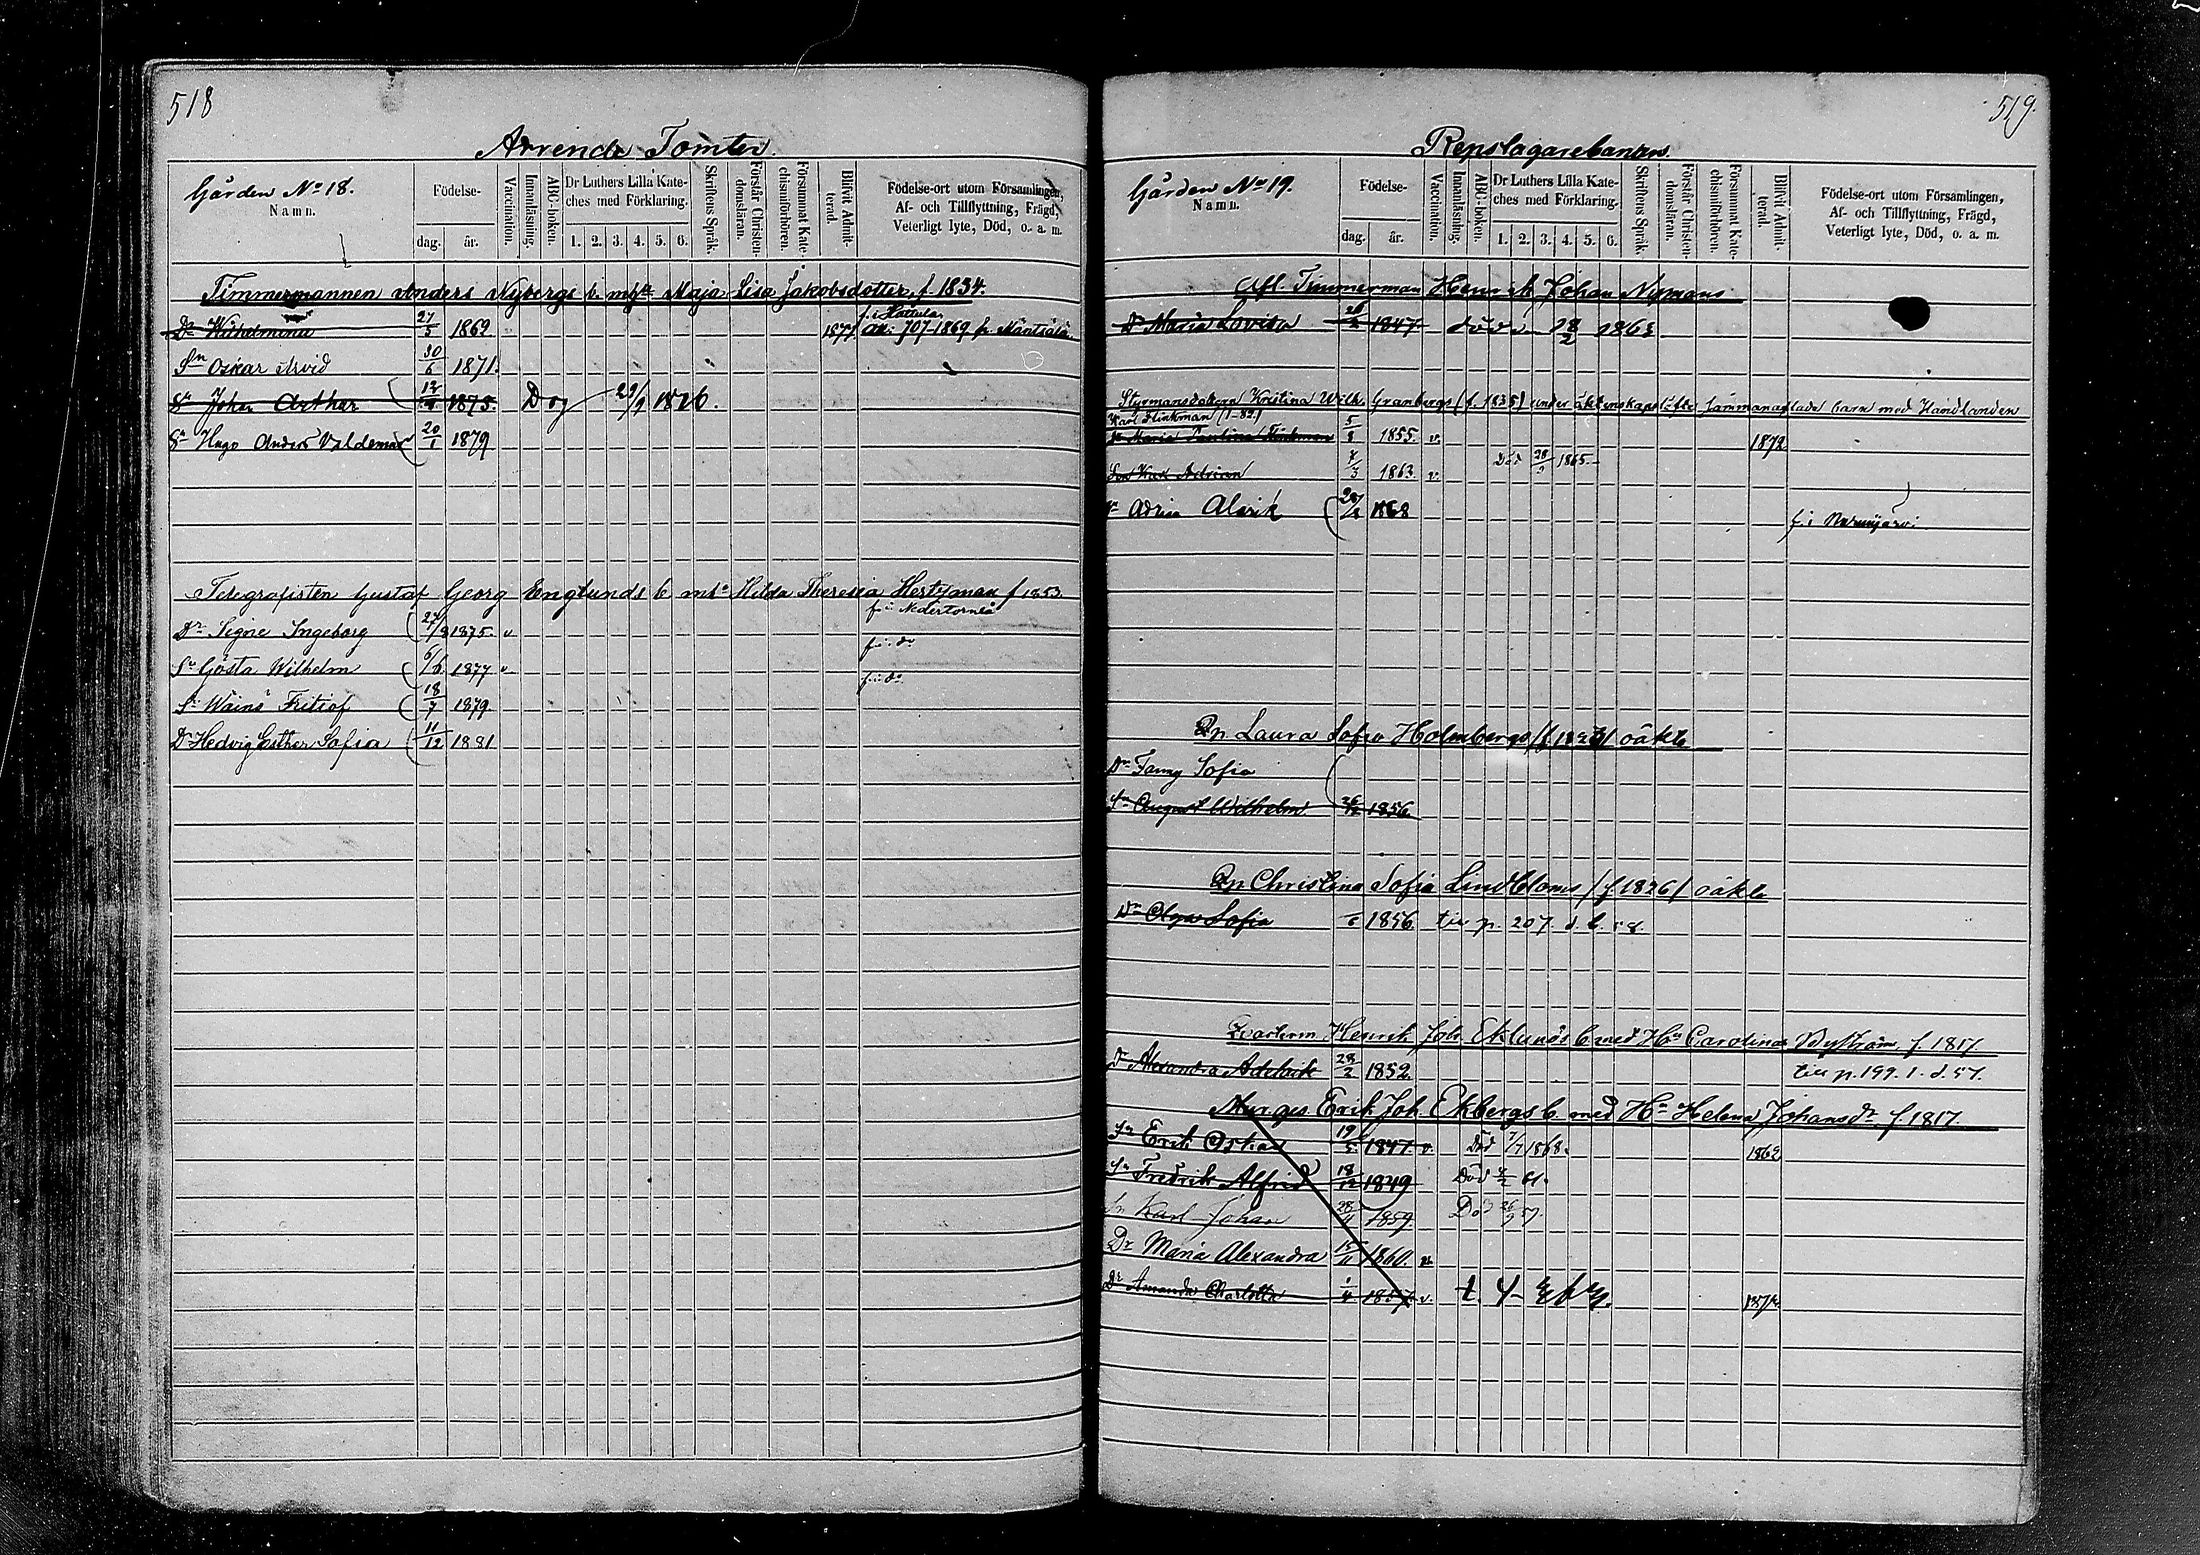 518
Arrende Tomter.
Gården No 18.
Namn.
Födelse-
dag. år.
Vaccination.
Innanläsning.
ABC-boken.
Dr Luthers Lilla Kate-
ches med Förklaring.
1. 2. 3. 4. 5. 6.
Skriftens Språk.
Förstår Christen-
domsläran.
Försummat Kate-
chismiförhören.
Blifvit Admit-
terad.
Födelse-ort utom Församlingen,
Af- och Tillflyttning, Frägd,
Veterligt lyte, Död, o. a. m.
Timmermannen Anders Nybergs b. m hu Maja Lisa Jakobsdotter f 1834.
f. i Hattula
Dr Wilhelmina 27/5 1862 1877 att: 707-1869 fr Mäntsälä.
Sn Oskar Arvid 30/6 1871.
Sn Johan Arthur 1875. Dog 29/9 1876.
Sn Hugo Anders Valdemar 20/1 1879
Telegrafisten Gustaf Georg Englunds b mha Hilda Theresia f 1853.
f. i Nedertorneå
Dr Signe Ingeborg 27/8 1875. v
f. i do
Sn Gösta Wilhelm 6/6 1877 v
f. i do
Sn Wäinö Fritiof 18/7 1879.
Dr Hedvig Esther Sofia 11/12 1881
519.
Repslagarebanan.
Gården No 19.
Namn.
Födelse-
dag. år.
Vaccination.
Innanläsning.
ABC-boken.
Dr Luthers Lilla Kate-
ches med Förklaring.
1. 2. 3. 4. 5. 6.
Skriftens Språk.
Förstår Christen-
domsläran.
Försummat Kate-
chismiförhören.
Blifvit Admit-
terad.
Födelse-ort utom Församlingen,
Af- och Tillflyttning, Frägd,
Veterligt lyte, Död, o. a. m.
Afl. Timmerman Henrik Johan Nymans
Dr Maria Lovisa 1847 död 28/2 1863
Styrmansdottern Kristina Wilh. Granbergs (f. 1835) under äktenskapslöfte sammanaflade barn med Handlanden
Karl Flinkman
Dr Maria Paulina Flinkman 5/8 1855. v. 1872
Son Karl Adrian 7/3 1863 v. Död 1865.
Sn Adrian Alarik 1868 f. i Nurmijärvi
Qn Laura Sofia Holmbergs oäkta
Dr Fanny Sofia
Sn August Wilhelm 26/12 1856.
Qn Christina Sofia Lindbloms / f 1836 / oäkta
Dr Olga Sofia 1856. till p. 207. d. b. 58.
Henrik Joh. Eklunds b med Hu Carolina Byström f. 1817.
Dr Alexandra Adelaide 28/2 1852. till p. 199. 1. d. 57.
Murges. Erik Joh. Ekbergs b. med Hu Helena Johansdr f. 1817.
Sn Erik Oskar 19/5 1847. v. Död 7/7 1868. 1862
Sn Fredrik Alfred 18/12 1849 Död 61.
Sn Karl Johan 28/11 1859 Död
Dr Maria Alexandra 15/11 1860. v.
Dr Amanda Charlotta 1/4 1857 v. 1873